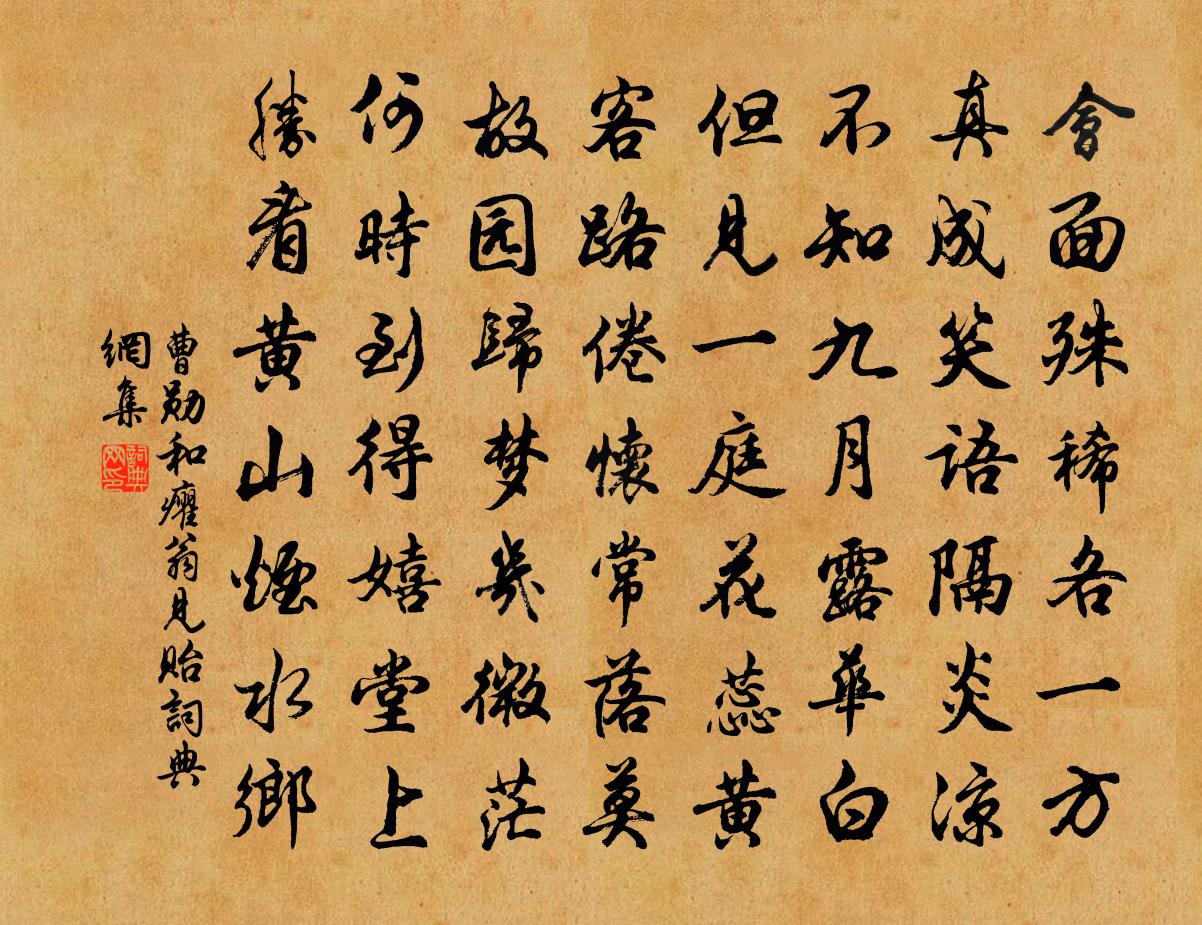 會面殊稀各一方
真成笑語隔炎涼
不知九月露華白
但見一庭花蕊黄
客路倦懷常落莫
故园歸梦幾微茫
何時到得嬉堂上
勝看黄山煙水鄉
曹勛和癯翁見貽詞典
網集
詞典
网印